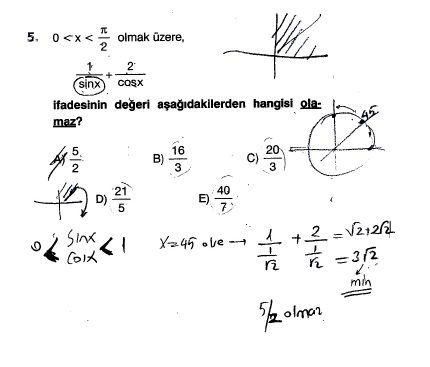 5. 0 < x < π/2 olmak üzere,
1/sinx + 2/cosx
ifadesinin değeri aşağıdakilerden hangisi ola-
maz?
45
A) 5/2 B) 16/3 C) 20/3
D) 21/5 E) 40/7
0 < sinx cosx < 1
x=45 → 1/(1/√2) + 2/(1/√2) = √2+2√2
= 3√2
min
5/2 olmaz